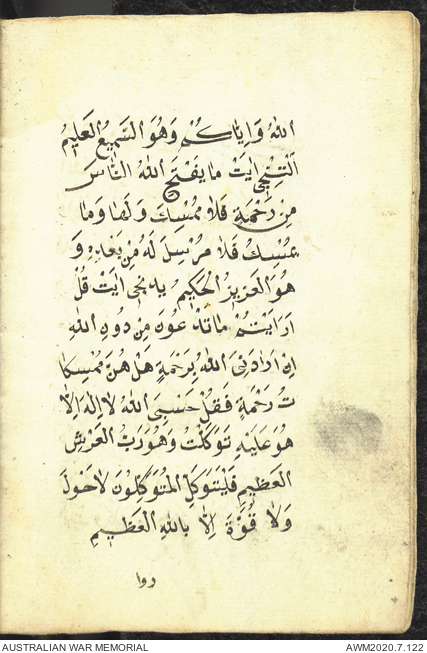 الله وَاِيّاكُمْ وَهُوَ السَّمِيعُ العَلِيمُ
اَلتِنْجِى ايَتْ مايَفْتَحِ اللهُ النّاسَ
مِنْ رَحْمَةٍ فَلاٰ مُمْسِكَ وَلَهٰا وَمٰا
يمْسِكْ فَلاٰ مرْسِلَ لَهُ مِنْ بَعْدِهِ وَ
هُوَ العَزِيزُ الْحَكِيمُ يدنجى ايَتْ قُلْ
اَرَايَتُمْ ماتدْعُونَ مِن دُونِ اللهِ
اِنْ اَرَادَنِىَ اللهُ بِرَحْمَةٍ هَلْ هُنَّ مُمْسِكا
تُ رَحْمَةٍ فَقُلْ حَسْبِىَ اللهُ لاٰ اِلهَ اِلاّ
هُوَ عَلَيْهِ تَوَكَّلْتُ وَهُوَ رَبُّ الْعَرْشِ
العَظِيمِ فَلْيَتَوَكَلِ المُتَوَكِّلُونَ لاٰحَوْلَ
وَلاٰ قُوَّةَ اِلّا باللهِ الْعَظِيمِ
روا
AUSTRALIAN WAR MEMORIAL
AWM2020.7.122